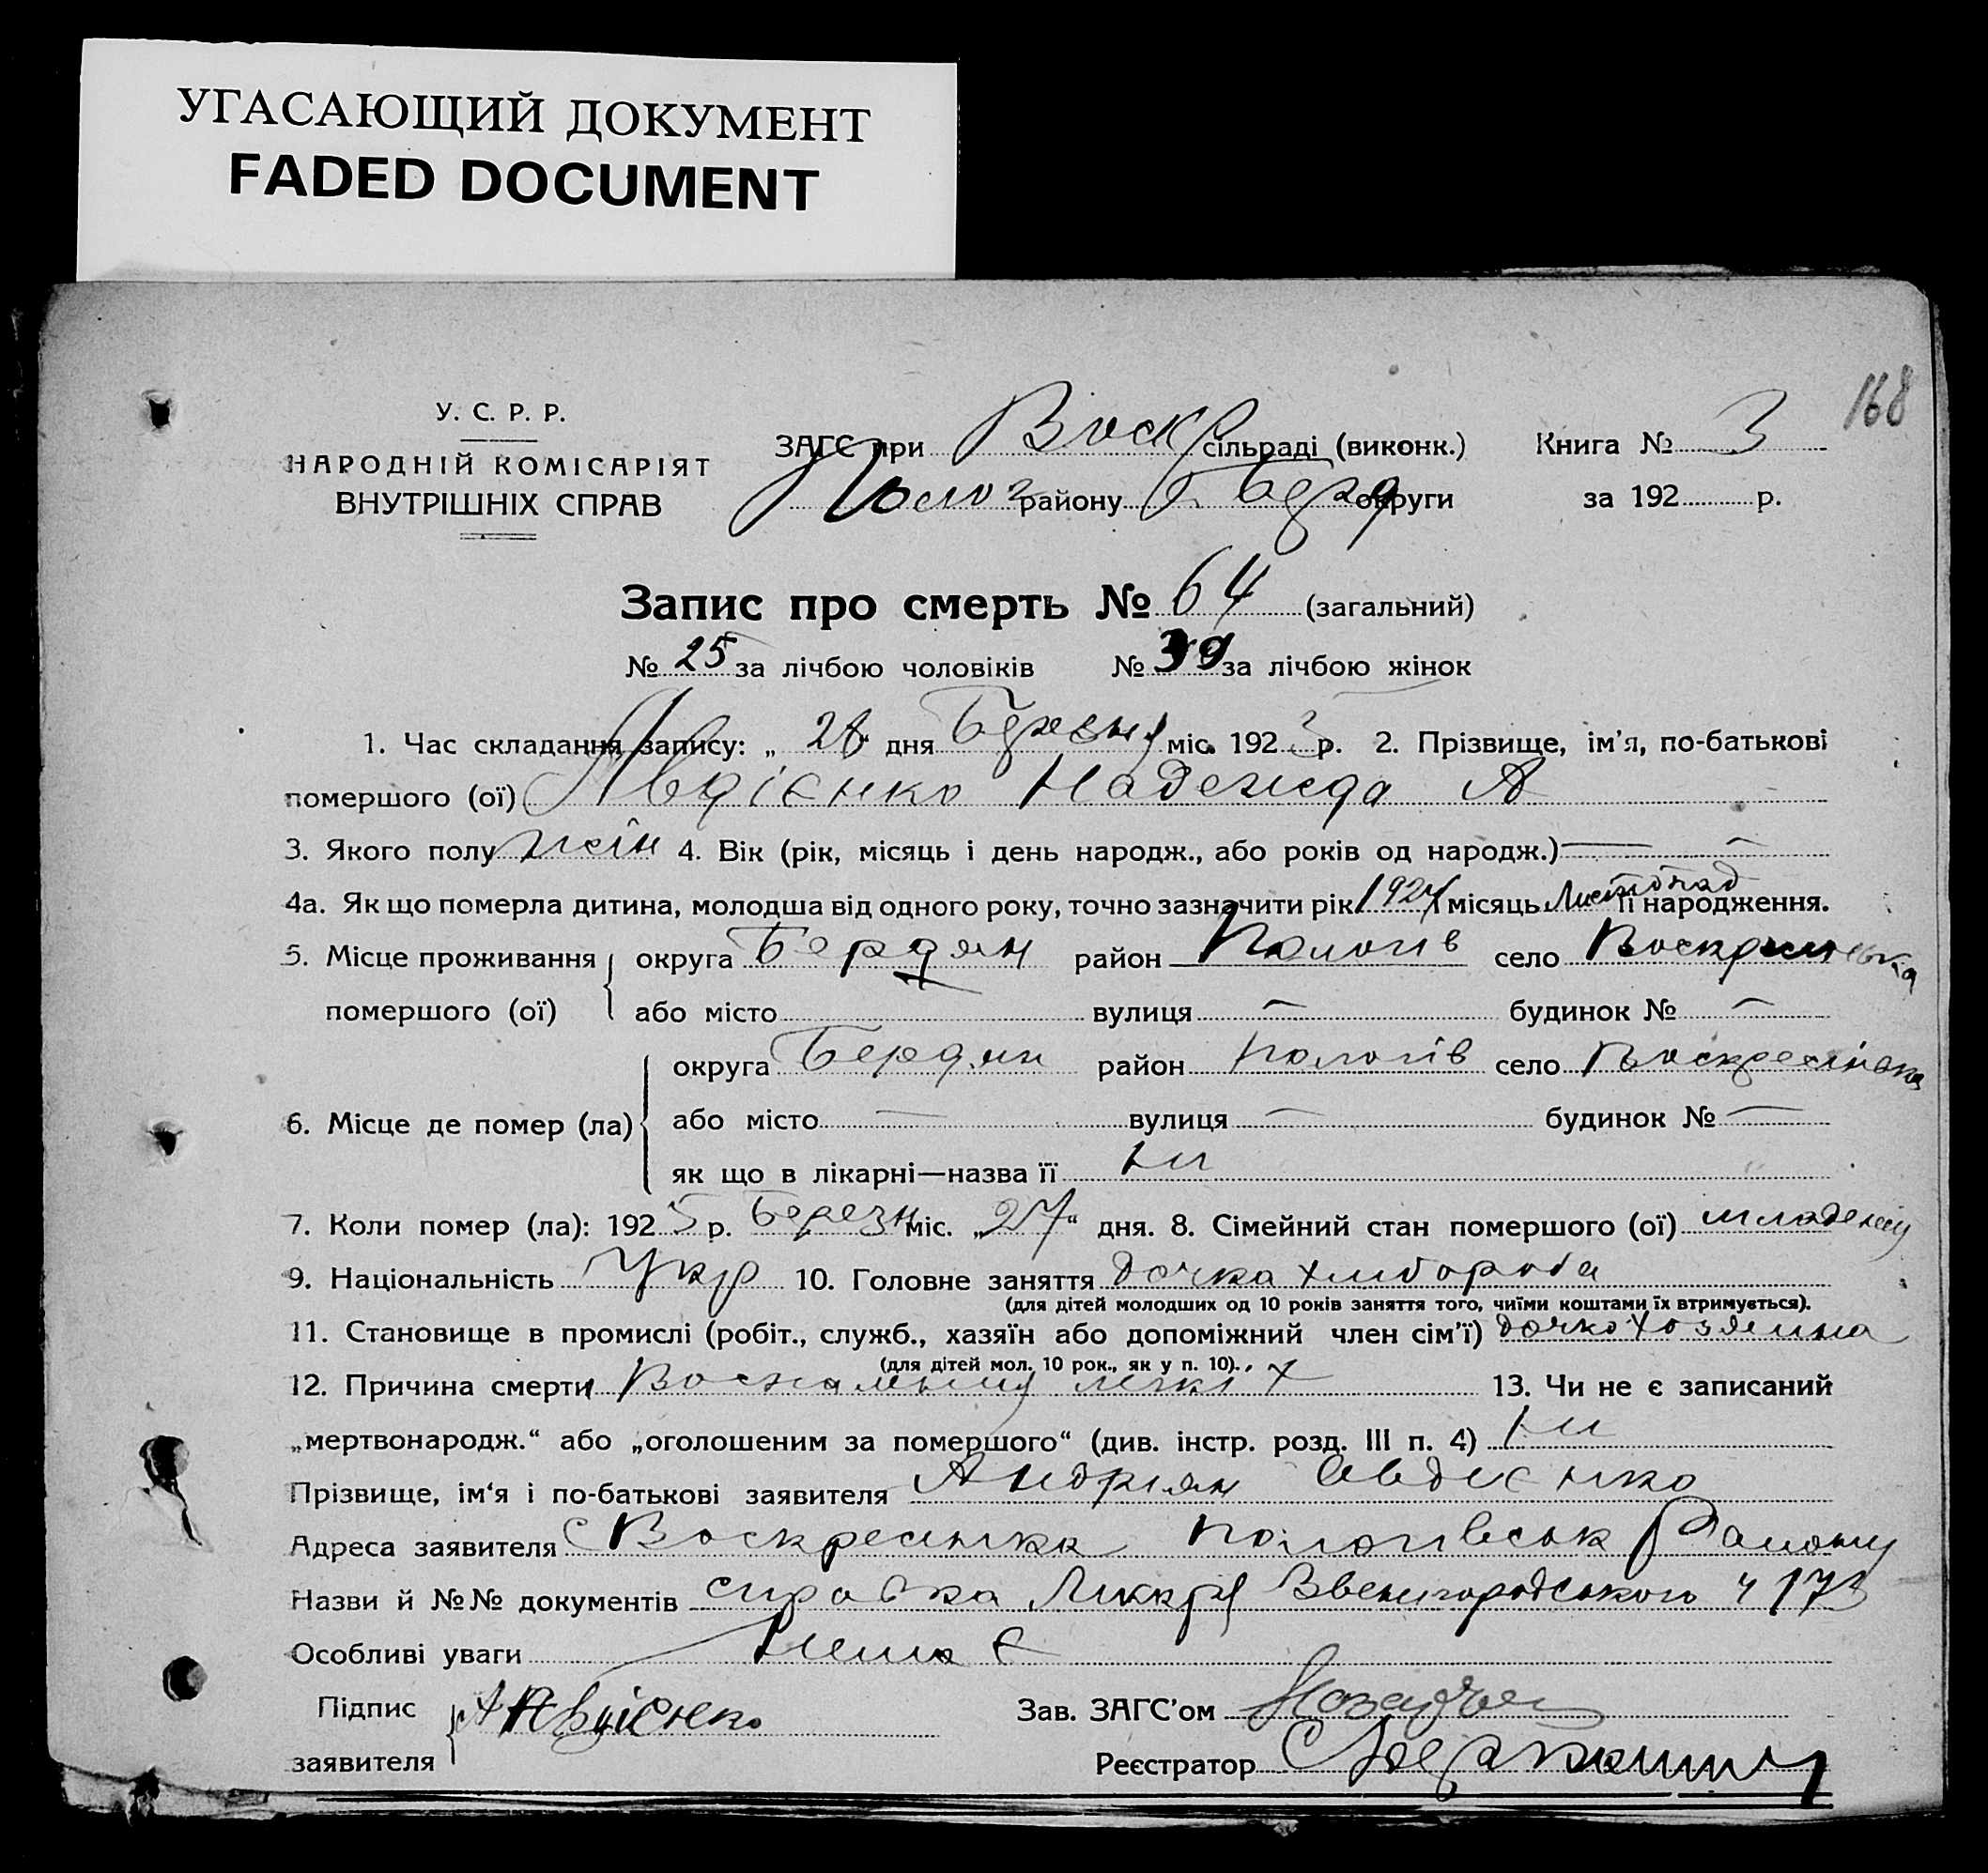 УГАСАЮЩИЙ ДОКУМЕНТ
FADED DOCUMENT
168
У. С. Р. Р.
НАРОДНІЙ КОМІСАРІЯТ
ВНУТРІШНІХ СПРАВ
ЗАГС при Воскр сільраді (виконк.)
Полог району Берд округи
Книга № 3
за 192 р.
Запис про смерть № 64 (загальний)
№ 25 за лічбою чоловіків № 39 за лічбою жінок
1. Час складання запису: „ 28 " дня Березня міс. 192 5 р. 2. Прізвище, ім'я, по-батькові
помершого (ої) Авдієнко Надежда А
3. Якого полу жін 4. Вік (рік, місяць і день народж., або років од народж.) — —
4а. Як що померла дитина, молодша від одного року, точно зазначити рік 1924 місяць Листопад її народження.
5. Місце проживання округа Бердян район Пологів село
помершого (ої) або місто вулиця — будинок № —
округа Бердян район Пологів село Воскресінвка
6. Місце де помер (ла) або місто — вулиця — будинок № —
як що в лікарні—назва її Ни
7. Коли помер (ла): 192 5 р. Березн міс. „ 27 " дня. 8. Сімейний стан помершого (ої) младенец
9. Національність Укр 10. Головне заняття дочка хлибороба
(для дітей молодших од 10 років заняття того, чиїми коштами їх втримується).
11. Становище в промислі (робіт., служб., хазяїн або допоміжний член сім'ї) дочка хозяина
(для дітей мол. 10 рок., як у п. 10).
12. Причина смерти легких 13. Чи не є записаний
„мертвонародж." або „оголошеним за помершого" (див. інстр. розд. III п. 4) Ни
Прізвище, ім'я і по-батькові заявителя Андриян Авдиєнко
Адреса заявителя С Воскресенка Пологивськ Району
Назви й №№ документів справка Звенигородського ч 173
Особливі уваги Нема є
Підпис заявителя А Авдиєнко
Зав. ЗАГС'ом
Реєстратор